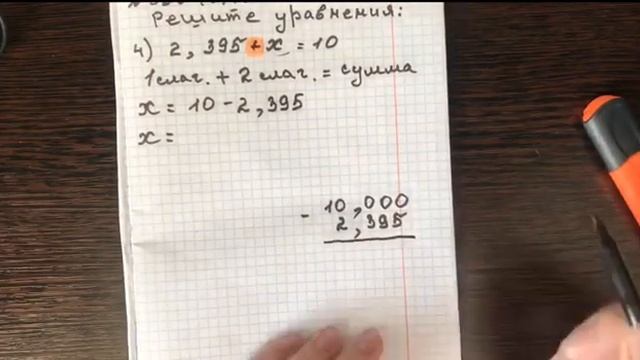 Решите уравнения:
4) 2,395 + x = 10
1 слаг. + 2 слаг. = сумма
x = 10 - 2,395
x =
- 10,000
2,395